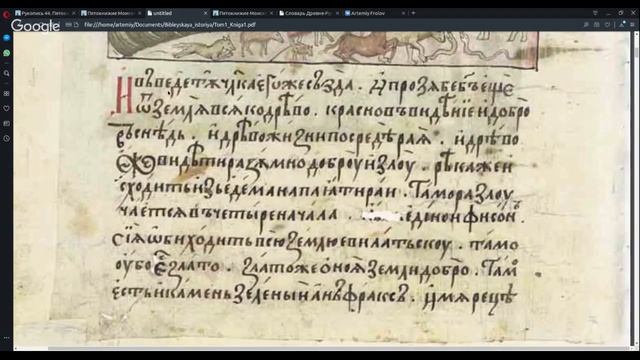 Рукопись 44. Пятокн
Пятокнижие Моисе
untitled
Пятокнижие Моисе
Словарь Древне-Ру
Artemiy Frolov
file:///home/artemiy/Documents/Bibleyskaya_istoriya/Tom1_Kniga1.pdf
Google
И въведе тꙋ чл҃ка егоже създа. И прозѧбе б҃ъ еще
ѿ землѧ всѧко древо красно въ видѣнїе и добро
въ снѣдь. и древо жизни посредѣ раѧ. и древо
вѣдѣти разꙋмно доброу и злоу. рѣка же и
сходить из едема напаѧти раи. тамо разлоу
чаетсѧ в четыре начала. единои фисонъ
сїѧ ѡбиходить всю землю евилатьскоу. тамо
оубо е҃ злато. злато же оноѧ земли добро. тамо
есть и камень зеленый анъфраксъ. имѧ рецѣ